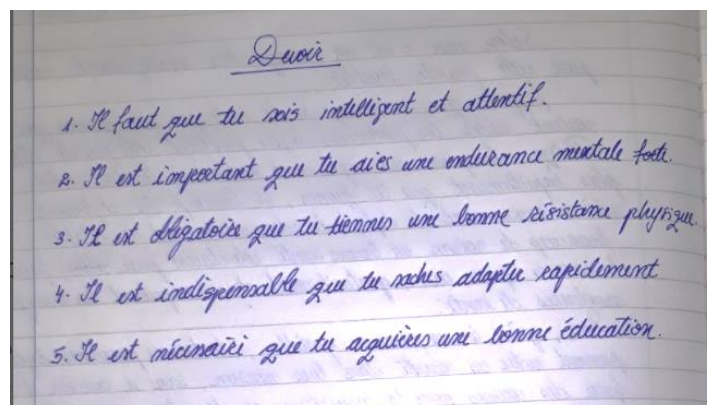 Devoir
1. Il faut que tu sois intelligent et attentif.
2. Il est important que tu aies une endurance mentale forte.
3. Il est obligatoire que tu tiennes une bonne résistance physique.
4. Il est indispensable que tu saches adapter rapidement
5. Il est nécessaire que tu acquières une bonne éducation.